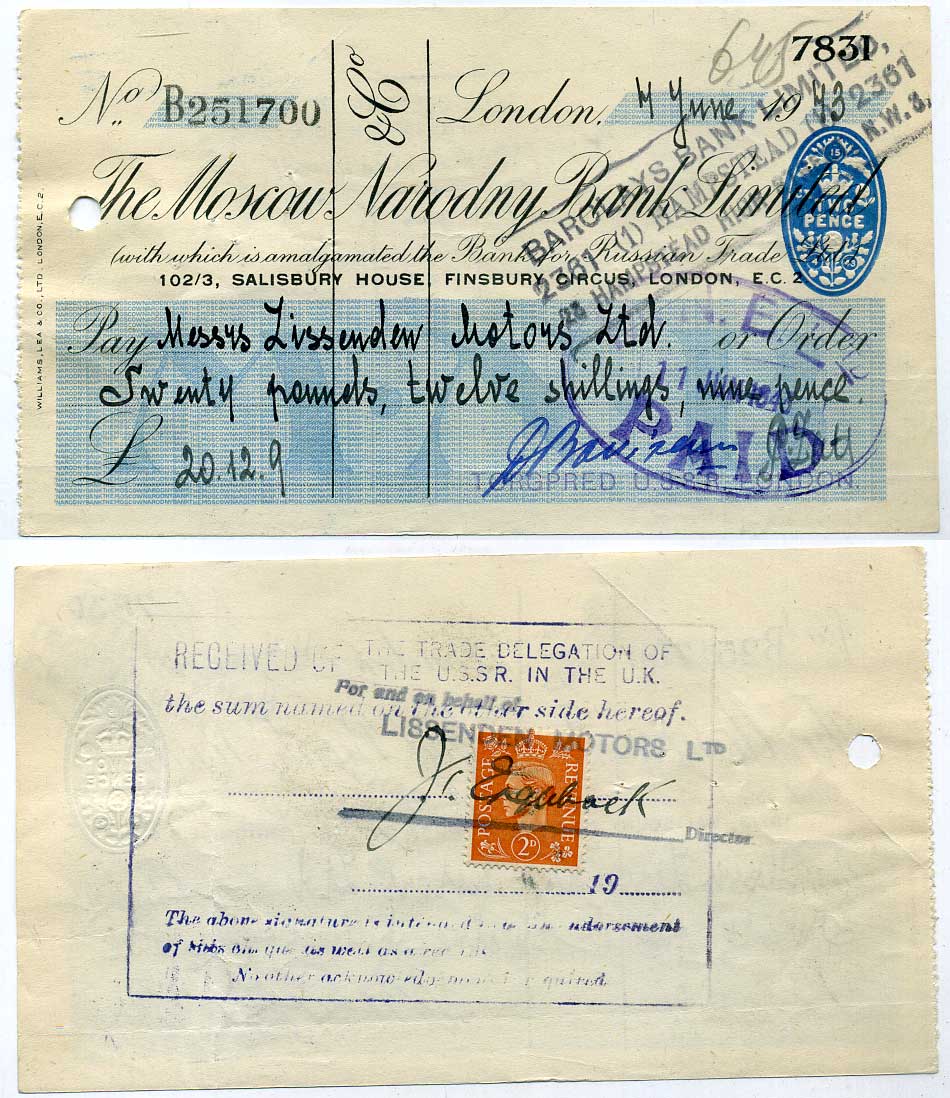 645
7831
No. B251700
& Co
London, 7 June 1943
The Moscow Narodny Bank Limited
(with which is amalgamated the Bank for Russian Trade Ltd.)
102/3, SALISBURY HOUSE, FINSBURY CIRCUS, LONDON, E.C. 2
BARCLAYS BANK LIMITED,
2361 (1) HAMPSTEAD (1) 2361
28 HAMPSTEAD N.W. 3.
PENCE
WILLIAMS, LEA & CO., LTD. LONDON, E.C. 2.
Pay Messrs Lissenden Motors Ltd. or Order
Twenty pounds, twelve shillings, nine pence.
£ 20.12.9
11
PAID
TORGPRED U.S.S.R. LONDON.
RECEIVED OF THE TRADE DELEGATION OF
THE U.S.S.R. IN THE U.K.
the sum named on the other side hereof.
For and on behalf of
LISSENDEN MOTORS LTD
POSTAGE REVENUE
2D
Director
19
The above signature is intended as an endorsement
of this cheque as well as a receipt
No other acknowledgement required